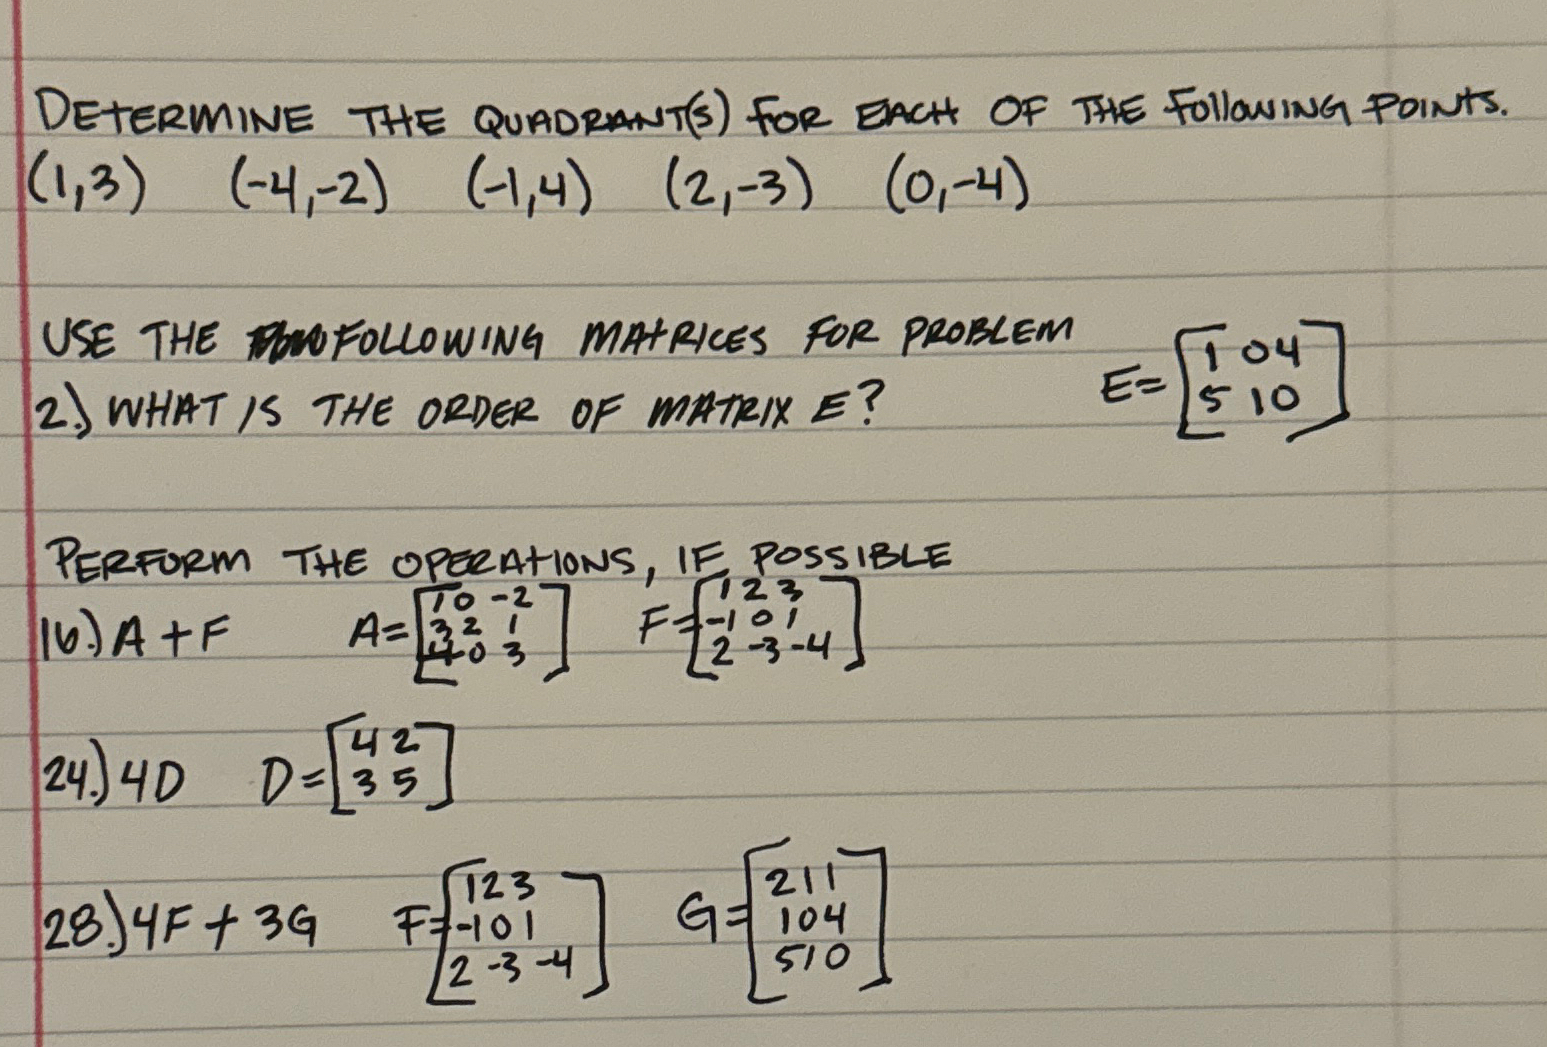 DETERMINE THE QUADRANT(S) FOR EACH OF THE FOLLOWING POINTS.
(1,3) (-4,-2) (-1,4) (2,-3) (0,-4)
USE THE FOLLOWING MATRICES FOR PROBLEM
2.) WHAT IS THE ORDER OF MATRIX E? E=[1 0 4
5 1 0]
PERFORM THE OPERATIONS, IF POSSIBLE
16.) A + F A=[1 0 -2
3 2 1
4 0 3] F=[1 2 3
-1 0 1
2 -3 -4]
24.) 4D D=[4 2
3 5]
28.) 4F + 3G F=[1 2 3
-1 0 1
2 -3 -4] G=[2 1 1
1 0 4
5 1 0]